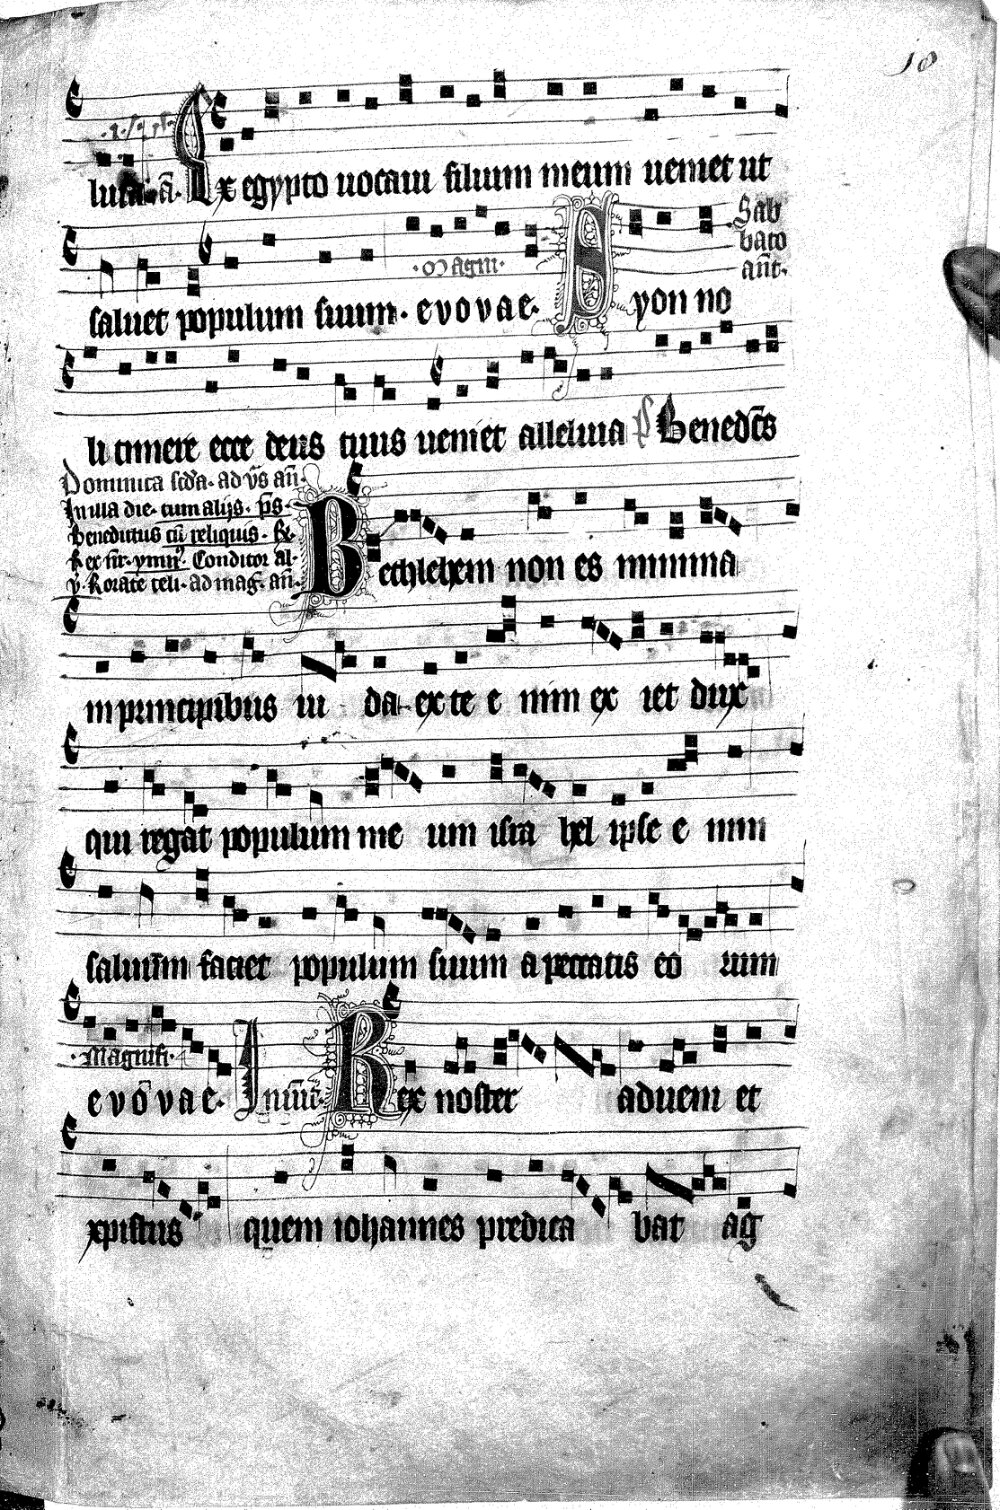 18
Ex egypto uocaui filium meum ueniet ut
saluet populum suum · e v o v a e · Syon no
Sab
bato
añ.
Magni.
li timere ecce deus tuus ueniet alleluia ps Benedcs
Dominica scda · ad vs añ.
In illa die · cum alijs · ps ·
Benedictus cū reliquis · R
Rex nr · ymn9 · Conditor al-
v · Rorate celi · ad mag̃ · añ.
Bethlehem non es minima
in principibus iu da ex te e nim ex iet dux
qui regat populum me um isra hel ipse e nim
saluum faciet populum suum a peccatis eo rum
· Magnifi ·
e v o v a e · Inuit̄ Rex noster adueni et
xpistus quem iohannes predica bat ag